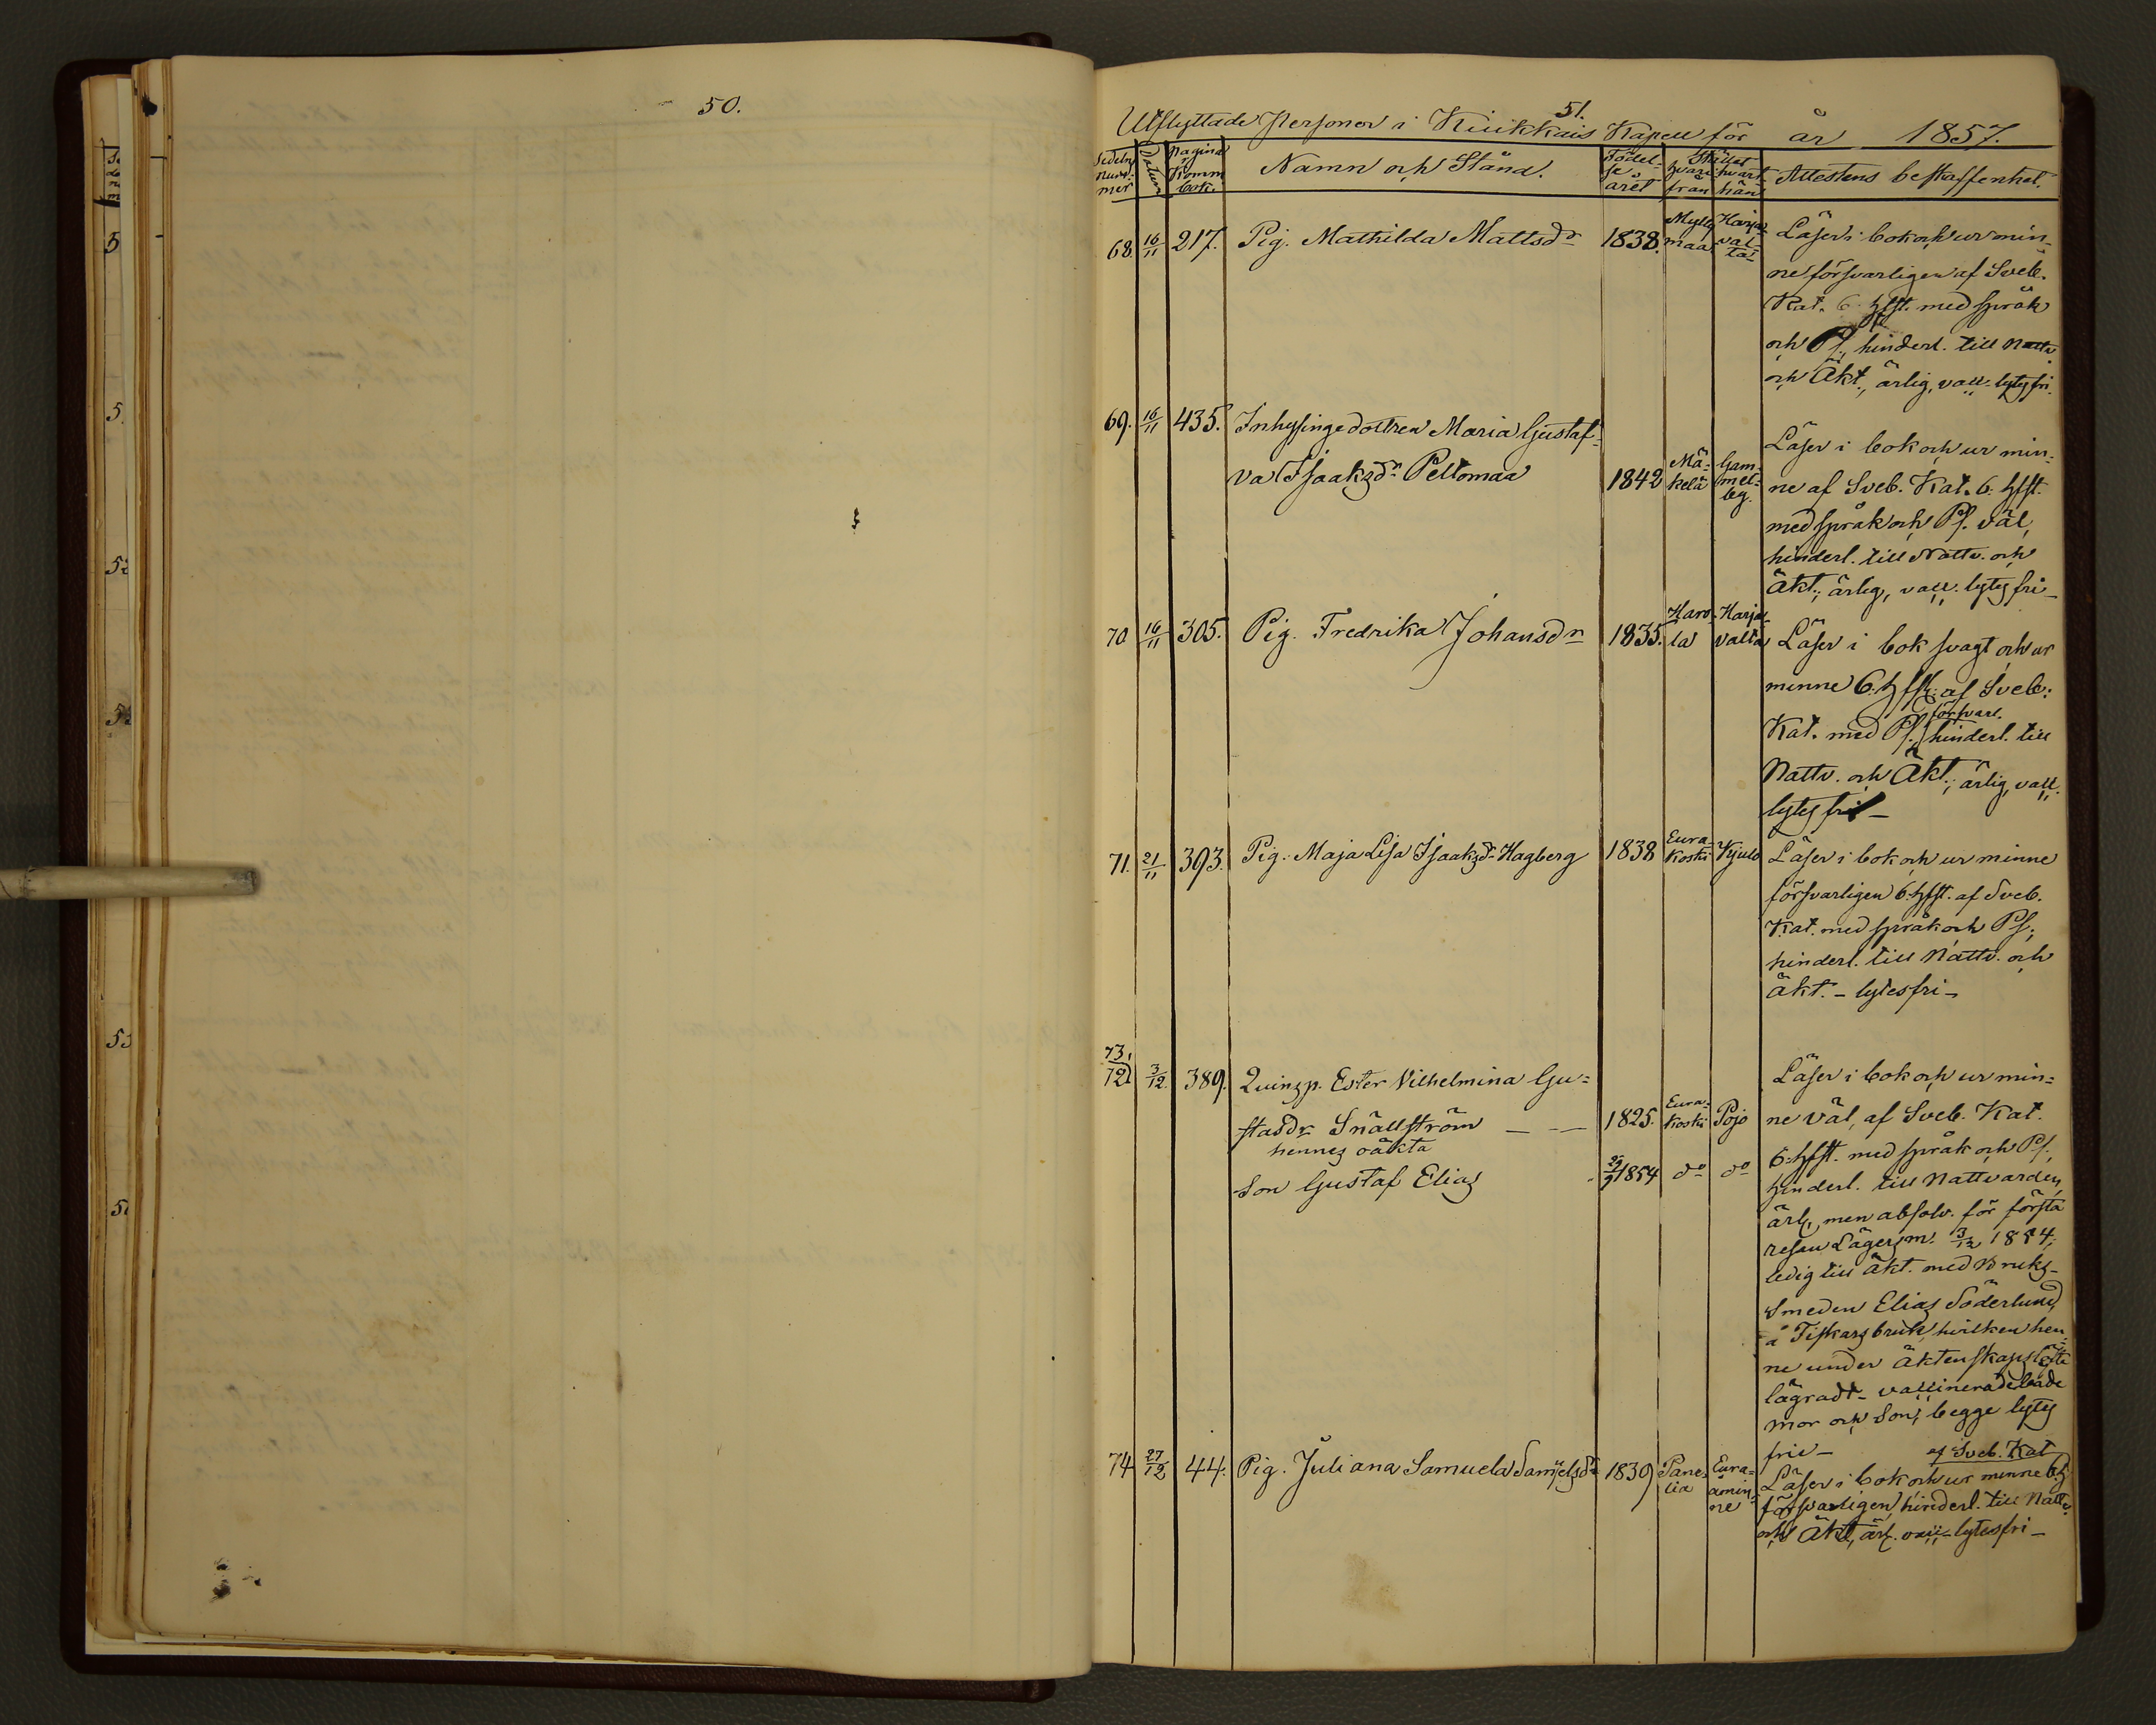 50.
51.
Utflyttade Personer i Kiukkais Kapell för år 1857.
Sedelns nummer Datum Pagina i Komm. bok. Namn och Stånd. Födelse året Stället hvari från hvart hän Attestens beskaffenhet.
68. 16/11 217. Pig. Mathilda Mattsdr 1838. Mylly maa Harja valta Läser i bok och ur min-
ne försvarligen af Sveb.
Kat. 6. hfst. med språk
och Ps., hinderl. till Nattv.
och Äkt., ärlig, vacc. lytesfri.
69. 16/11 435. Inhysingedottren Maria Gustaf-
va Isaksdr Peltomaa 1842 Mä- kelä Gam- mel- by.
Läser i bok och ur min-
ne af Sveb. Kat. 6. hfst.
med språk och Ps. väl,
hinderl. till Nattv. och
äkt.; ärlig, vacc. lytesfri -
70 16/11 305. Pig. Fredrika Johansdr 1835. Haro- la Harja- valta Läser i bok svagt och ur
minne 6. hfst. af Sveb.
försvarl.
Kat. med Ps. hinderl. till
Nattv. och Äkt.; ärlig, vacc.
lytesfri -
71. 21/11 393. Pig. Maja Lisa Isaksdr Hagberg 1838 Eura- koski Kjulo Läser i bok och ur minne
försvarligen 6. hfst. af Sveb.
Kat. med språk och Ps.,
hinderl. till Nattv. och
äkt. - lytesfri -
73,
72 3/12. 389. Quinsp. Ester Vilhelmina Gu-
stafsdr Snällström - - 1825. Eura- koski Pojo
hennes oäkta
Son Gustaf Elias 29/9 1854 do do
Läser i bok och ur min-
ne väl, af Sveb. Kat.
6. hfst. med språk och Ps.,
hinderl. till Nattvarden,
ärl., men absolv. för första
resan Lägersm. 3/12 1854;
ledig till äkt. med Bruks-
Smeden Elias Söderlund
å Fiskars bruk, hvilken hen-
ne under äktenskapslöfte
lägradt - vaccinerade både
mor och Son, begge lytes
frie -
74 27/12 44. Pig. Juliana Samuela Samuelsdr 1839 Pane- lia Eura- åmin- ne
af Sveb. Kat
Läser i bok och ur minne 6. h
försvarligen, hinderl. till Nattv.
och Äkt, ärl. vacc - lytesfri -